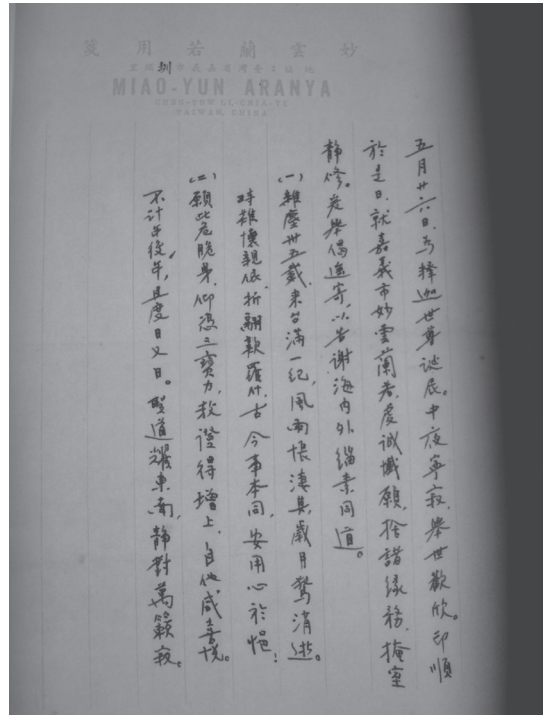 妙雲蘭若用箋
地址:臺灣省嘉義市圳頭里
MIAO-YUN ARANYA
CHEN-TOW LI, CHIA-YI
TAIWAN, CHINA
五月廿六日,为釋迦世尊誕辰。中夜寧寂,舉世歡欣。印順
於是日,就嘉義市妙雲蘭若,虔誠懺願,捨諸緣務,掩室
靜修。爰舉偈遙寄,以告謝海內外緇素同道。
(一)離塵卅五載,来台滿一紀,風雨悵淒其,歲月驚消逝。
時難懷親依,折翮歎羅什,古今事本同,安用心於悒!
(二)願此危脆身,仰憑三寶力,教證得增上,自他咸喜悅。
不計年復年,且度日又日。聖道耀東南,靜對萬籟寂。